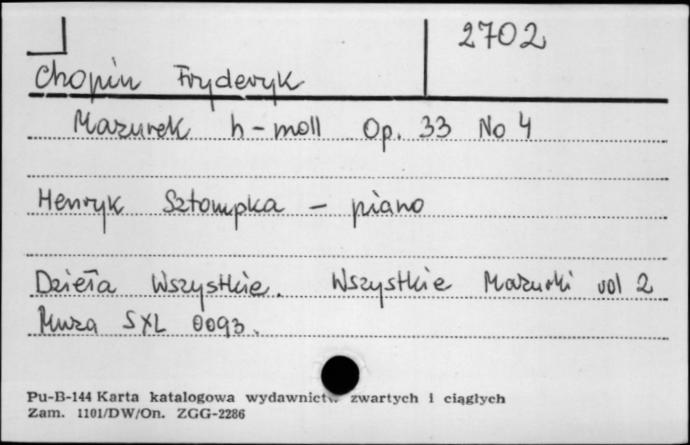 2702
Chopin Fryderyk
Mazurek h-moll Op. 33 No 4
Henryk Sztompka - piano
Dzieła Wszystkie. Wszystkie Mazurki vol 2
Muza SXL 0093.
Pu-B-144 Karta katalogowa wydawnictw zwartych i ciągłych
Zam. 1101/DW/On. ZGG-2286